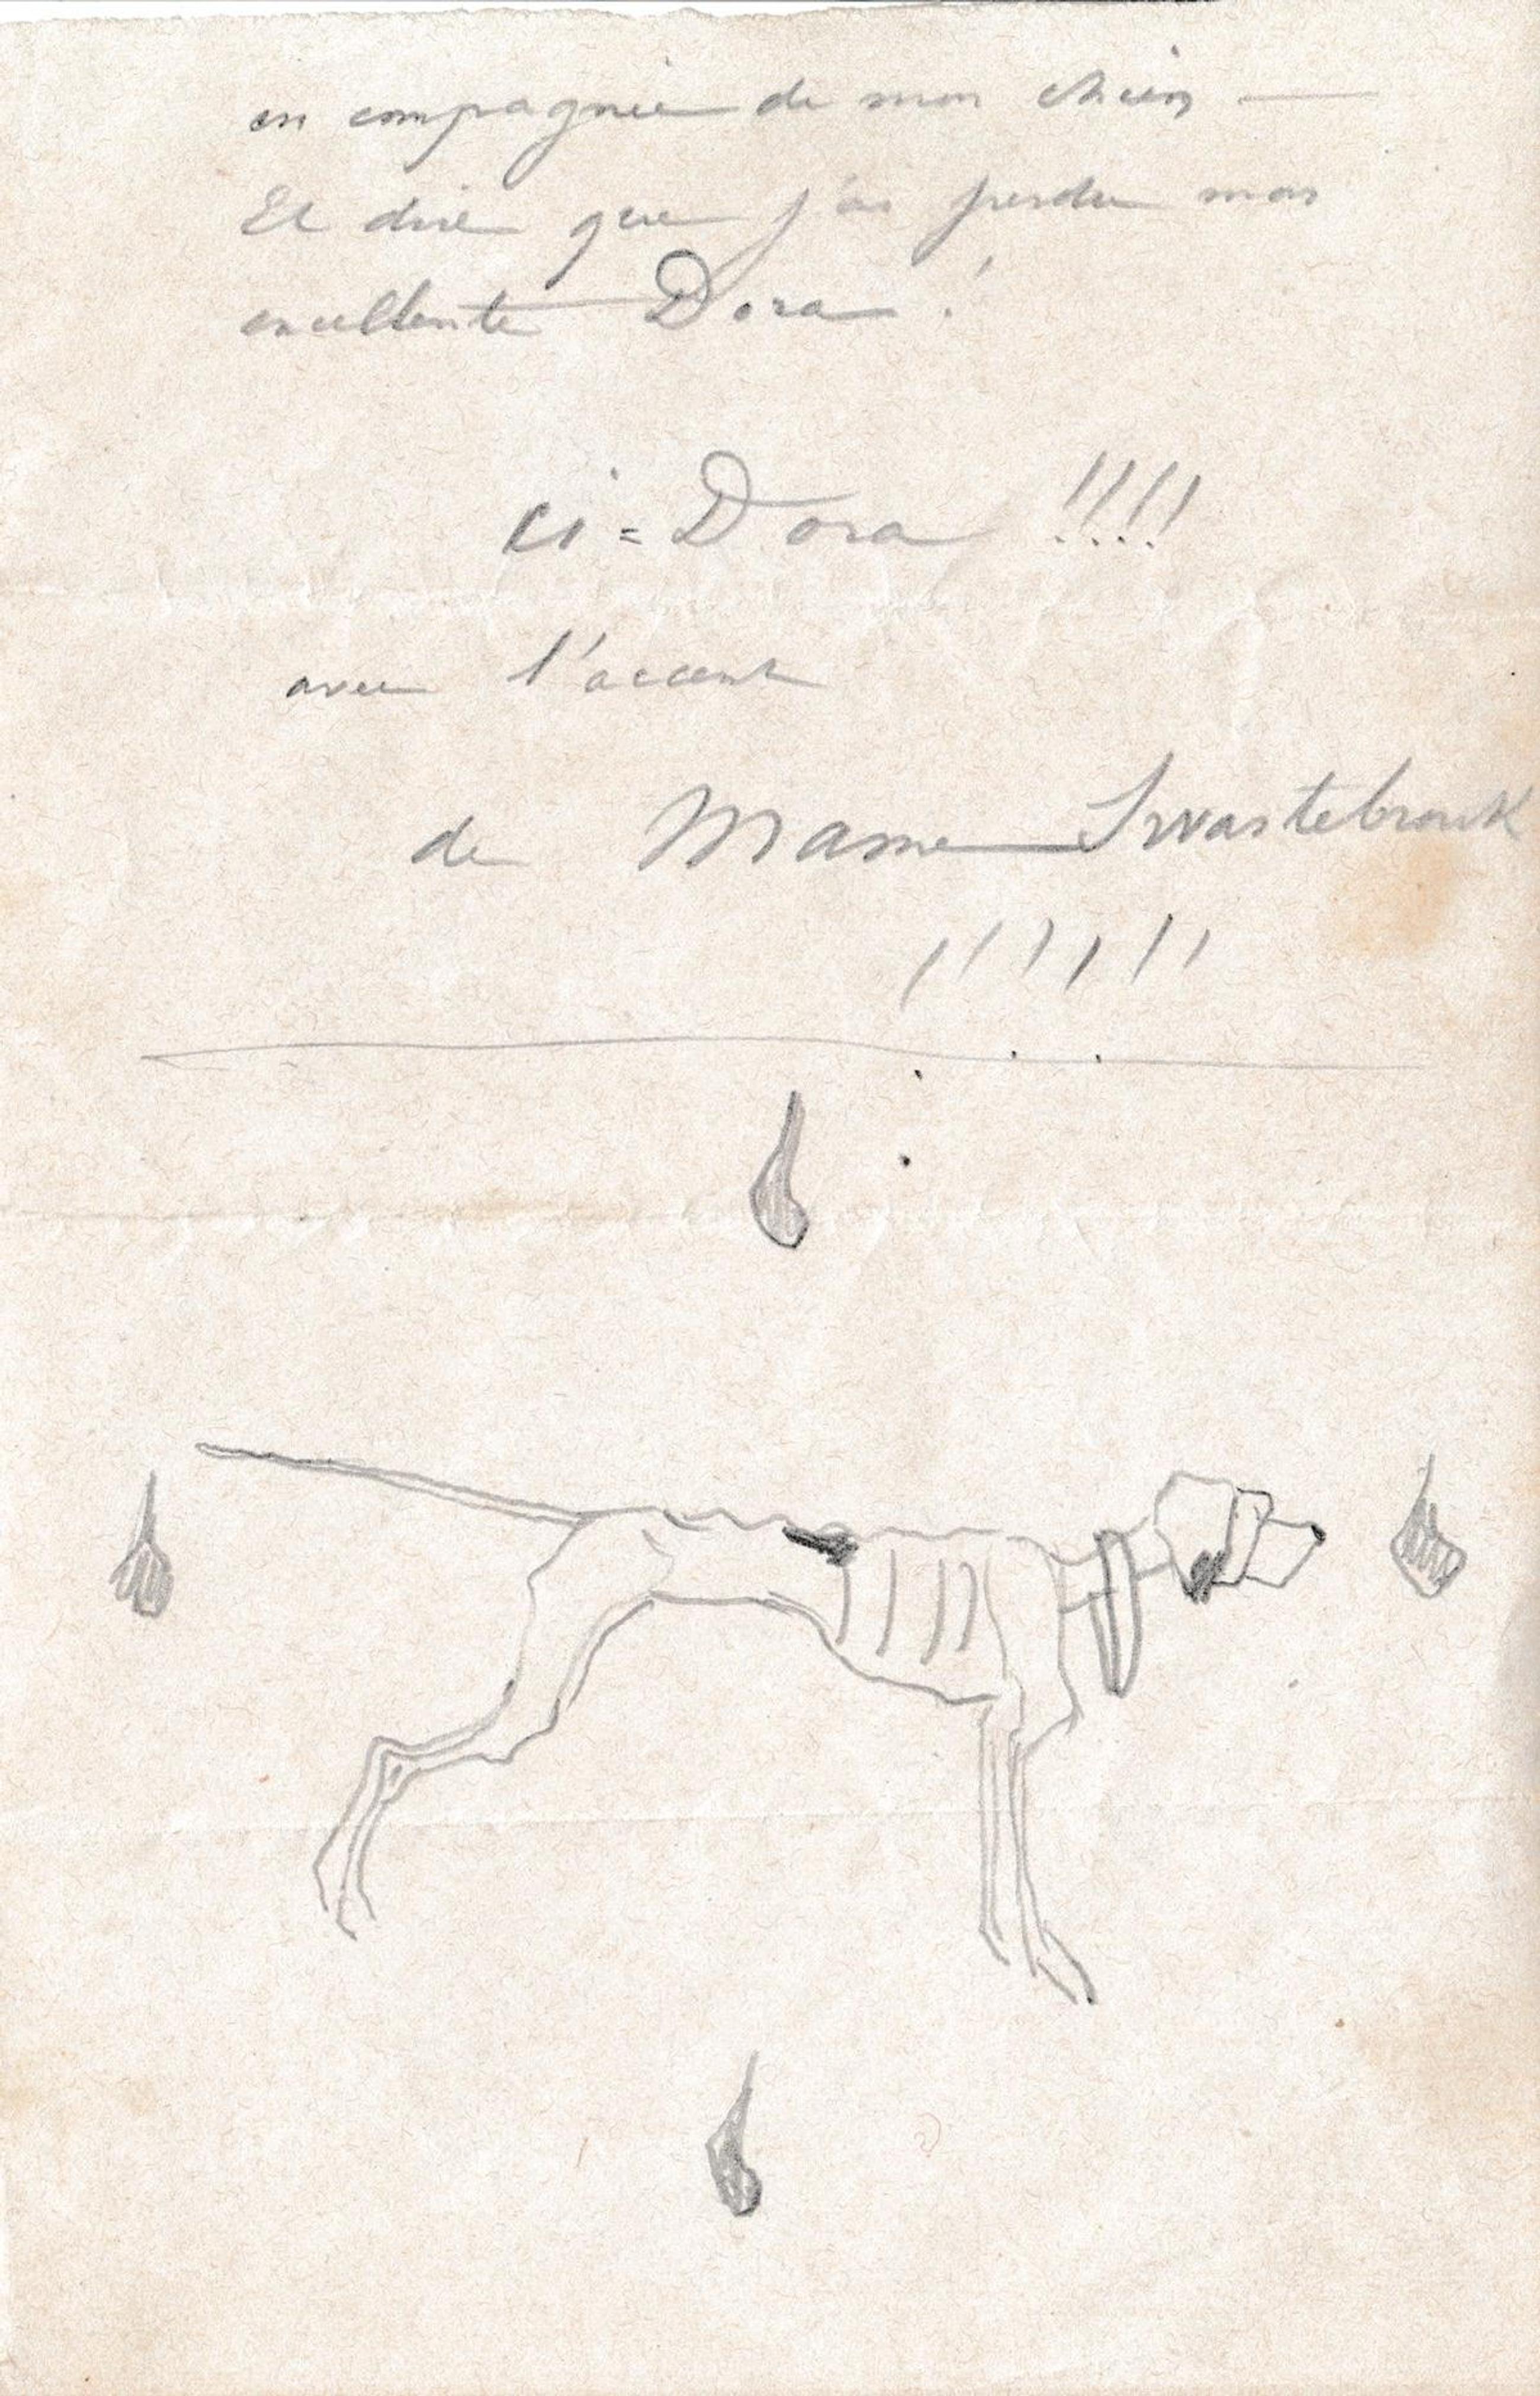 en compagnie de mon chien —
Et dire que j'ai perdu mon
excellente Dora !
ci = Dora !!!!
avec l'accent
de Mame Swastebrouck
!!!!!!